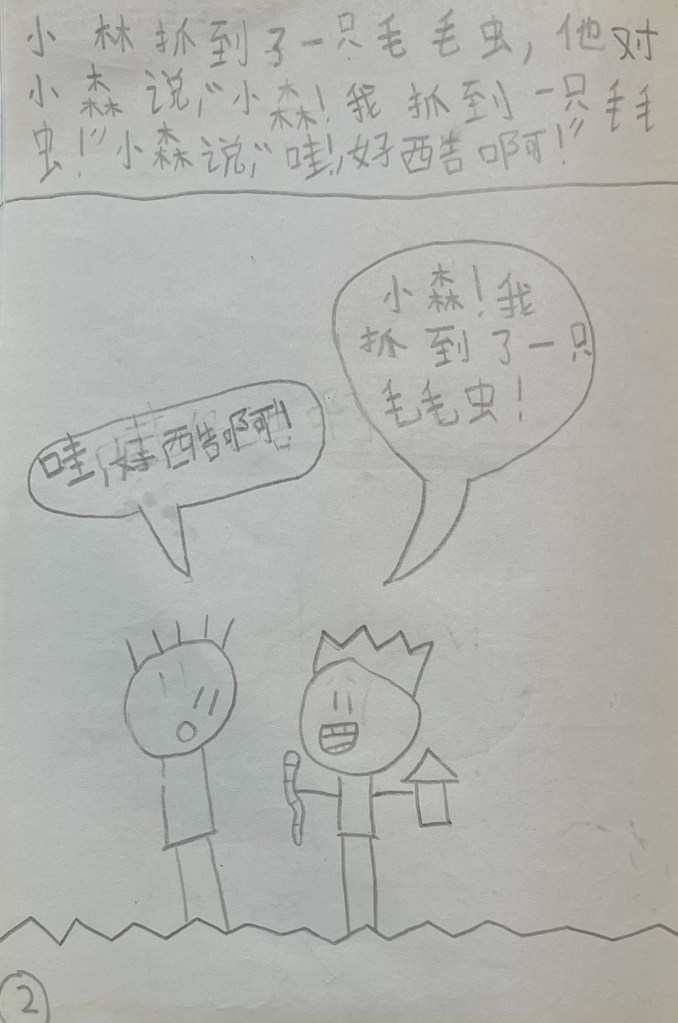 小林抓到了一只毛毛虫，他对
小森说，“小森！我抓到一只毛毛
虫！”小森说，“哇！，好酷啊！”
小森！我
抓到了一只
毛毛虫！
哇，好酷啊！
2